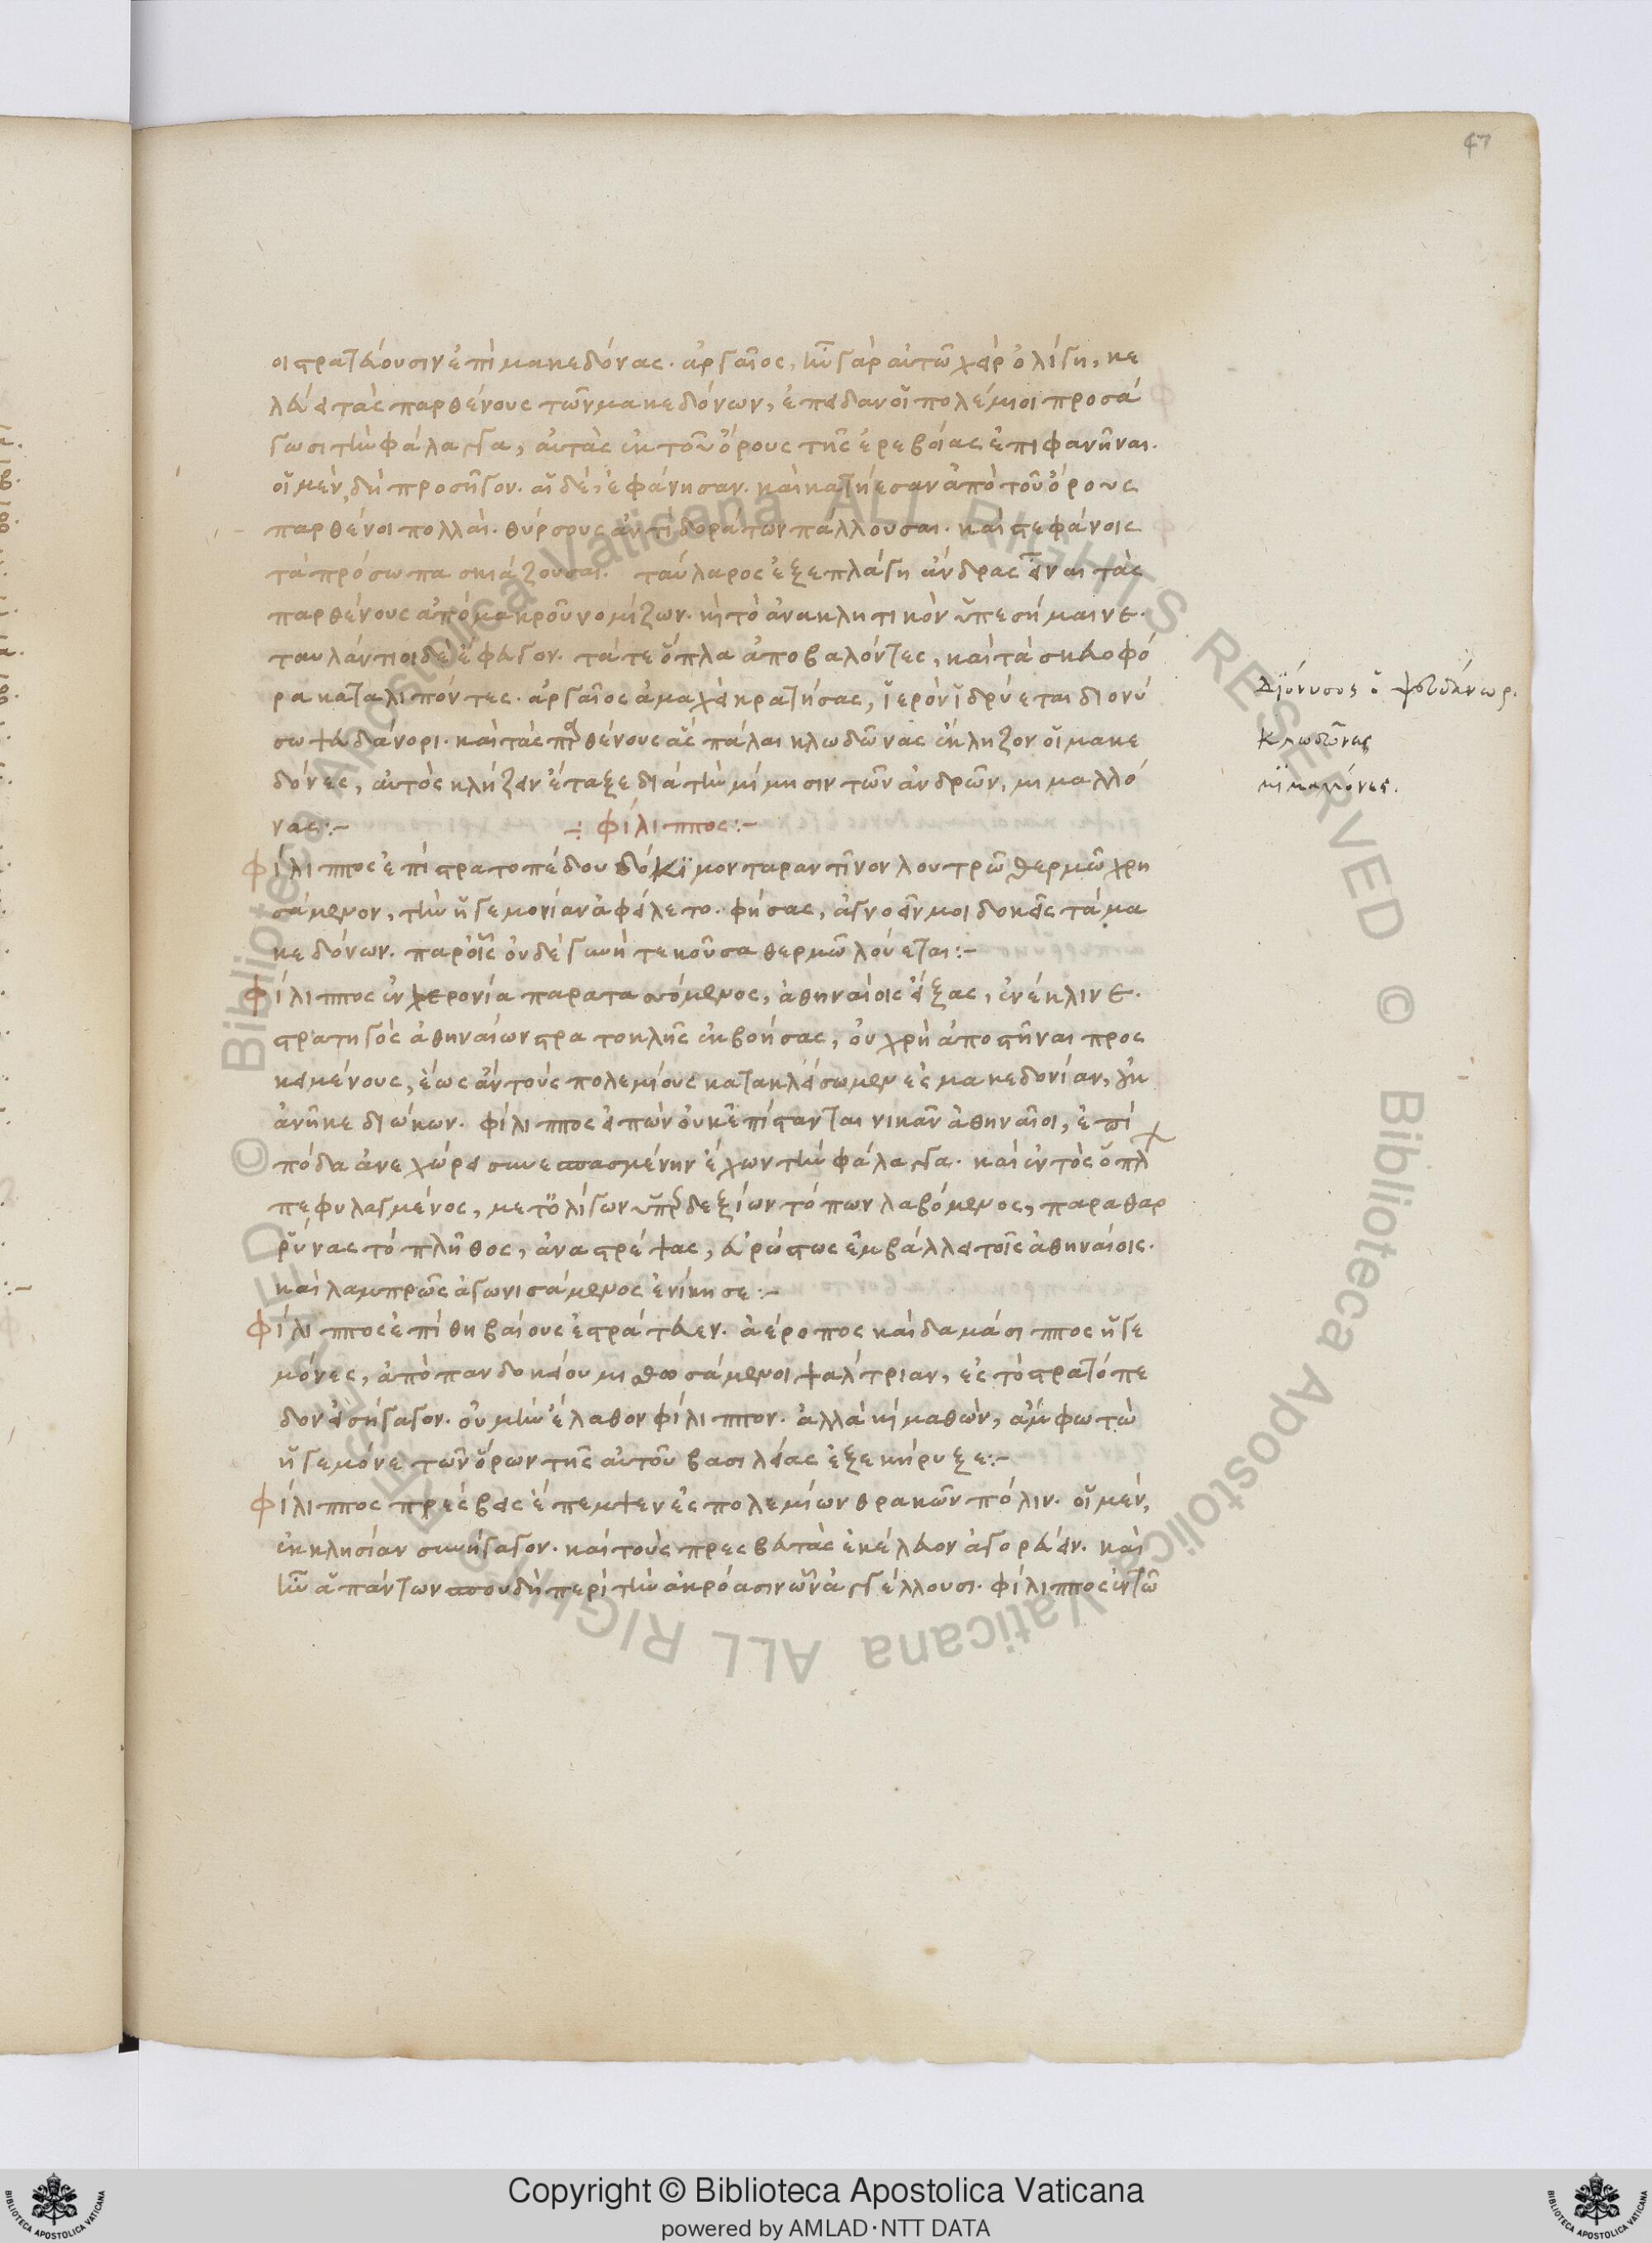 47
οι στρατεύουσιν ἐπὶ μακεδόνας. ἀργαῖος, ἦν γὰρ αὐτῶ χεὶρ ὀλίγη, κε
λεύει τὰς παρθένους τῶν μακεδόνων, ἐπειδαν οἱ πολέμιοι προσά
γωσι τὴν φάλαγγα, αὐτὰς ἐκ τοῦ ὄρους τῆς ἐρεβοίας ἐπιφανῆναι.
οἱ μὲν δὴ προσῆγον. αἱ δὲ, ἐφάνησαν. καὶ κατήεσαν ἀπὸ τοῦ ὄρους
παρθένοι πολλαὶ. θύρσους ἀντὶ δοράτων πάλλουσαι. καὶ στεφάνοις
τὰ πρόσωπα σκιάζουσαι. ταύλαρος ἐξεπλάγη ἄνδρας εἶναι τὰς
παρθένους ἀπὸ μακροῦ νομίζων. κὶ τὸ ἀνακλητικὸν ὑπεσήμαινε.
ταυλάντιοι δὲ ἔφευγον. τά τε ὅπλα ἀποβαλόντες, καὶ τὰ σκευοφό
ρα καταλιπόντες. ἀργαῖος ἀμαχεὶ κρατήσας, ἱερὸν ἱδρύεται διονύ
σω ψευδάνορι. καὶ τὰς παρθένους ἃς πάλαι κλωδῶνας ἔκληζον οἱ μακε
δόνες, αὐτὸς κλήζειν ἔταξε διὰ τὴν μίμησιν τῶν ἀνδρῶν, μιμαλλό
νας:-
÷ φίλιππος:-
Φίλιππος ἐπὶ στρατοπέδου δόκιμον ταραντῖνον λουτρῶ θερμῶ χρη
σάμενον, τὴν ἡγεμονίαν ἀφείλετο. φήσας, ἀγνοεῖν μοι δοκεῖς τὰ μα
κεδόνων. παρ' οἷς οὐδὲ γυνὴ τεκοῦσα θερμῶ λούεται:-
Φίλιππος ἐν χερονία παρατασσόμενος, ἀθηναίοις εἴξας, ἐνέκλινε.
στρατηγὸς ἀθηναίων στρατοκλῆς ἐκβοήσας, οὐ χρὴ ἀποστῆναι προς
κειμένους, ἕως ἂν τοὺς πολεμίους κατακλείσωμεν ἐς μακεδονίαν, οὐκ
ἀνῆκε διώκων. φίλιππος εἰπὼν οὐκ ἐπίστανται νικᾶν ἀθηναῖοι, ἐπὶ
πόδα ἀνεχώρει συνεσπασμένην ἔχων τὴν φάλαγγα. καὶ ἐντὸς ὅπλ
πεφυλαγμένος, μετ' ὀλίγων ὑπερδεξίων τόπων λαβόμενος, παραθαρ
ρύνας τὸ πλῆθος, ἀναστρέψας, εὐρώστως ἐμβάλλει τοῖς ἀθηναίοις.
καὶ λαμπρῶς ἀγωνισάμενος ἐνίκησε:-
Φίλιππος ἐπὶ θηβαίους ἐστράτευεν. ἀέροπος καὶ δαμάσιππος ἡγε
μόνες, ἀπὸ πανδοκείου μισθωσάμενοι ψαλίτριαν, ἐς τὸ στρατόπε
δον εἰσήγαγον. οὐ μὴν ἔλαθον φίλιππον. ἀλλὰ κὶ μαθὼν, ἄμφω τὼ
ἡγεμόνε τῶν ὅρων τῆς αὐτοῦ βασιλείας ἐξεκήρυξε:-
Φίλιππος πρέσβεις ἔπεμψεν ἐς πολεμίων θρακῶν πόλιν. οἱ μὲν,
ἐκκλησίαν συνήγαγον. καὶ τοὺς πρεσβευτὰς ἐκέλευον ἀγορεύειν. καὶ
ἦν ἁπάντων σπουδὴ περὶ τὴν ἀκρόασιν ὧν ἀγγέλλουσι. φίλιππος ἐν τῶ
Διόνυσος ὁ ψευδάνωρ.
κλωδῶνες
μιμαλλόνες.
Copyright © Biblioteca Apostolica Vaticana
powered by AMLAD·NTT DATA
© Biblioteca Apostolica Vaticana ALL RIGHTS RESERVED © Biblioteca Apostolica Vaticana ALL RIGHTS RESERVED